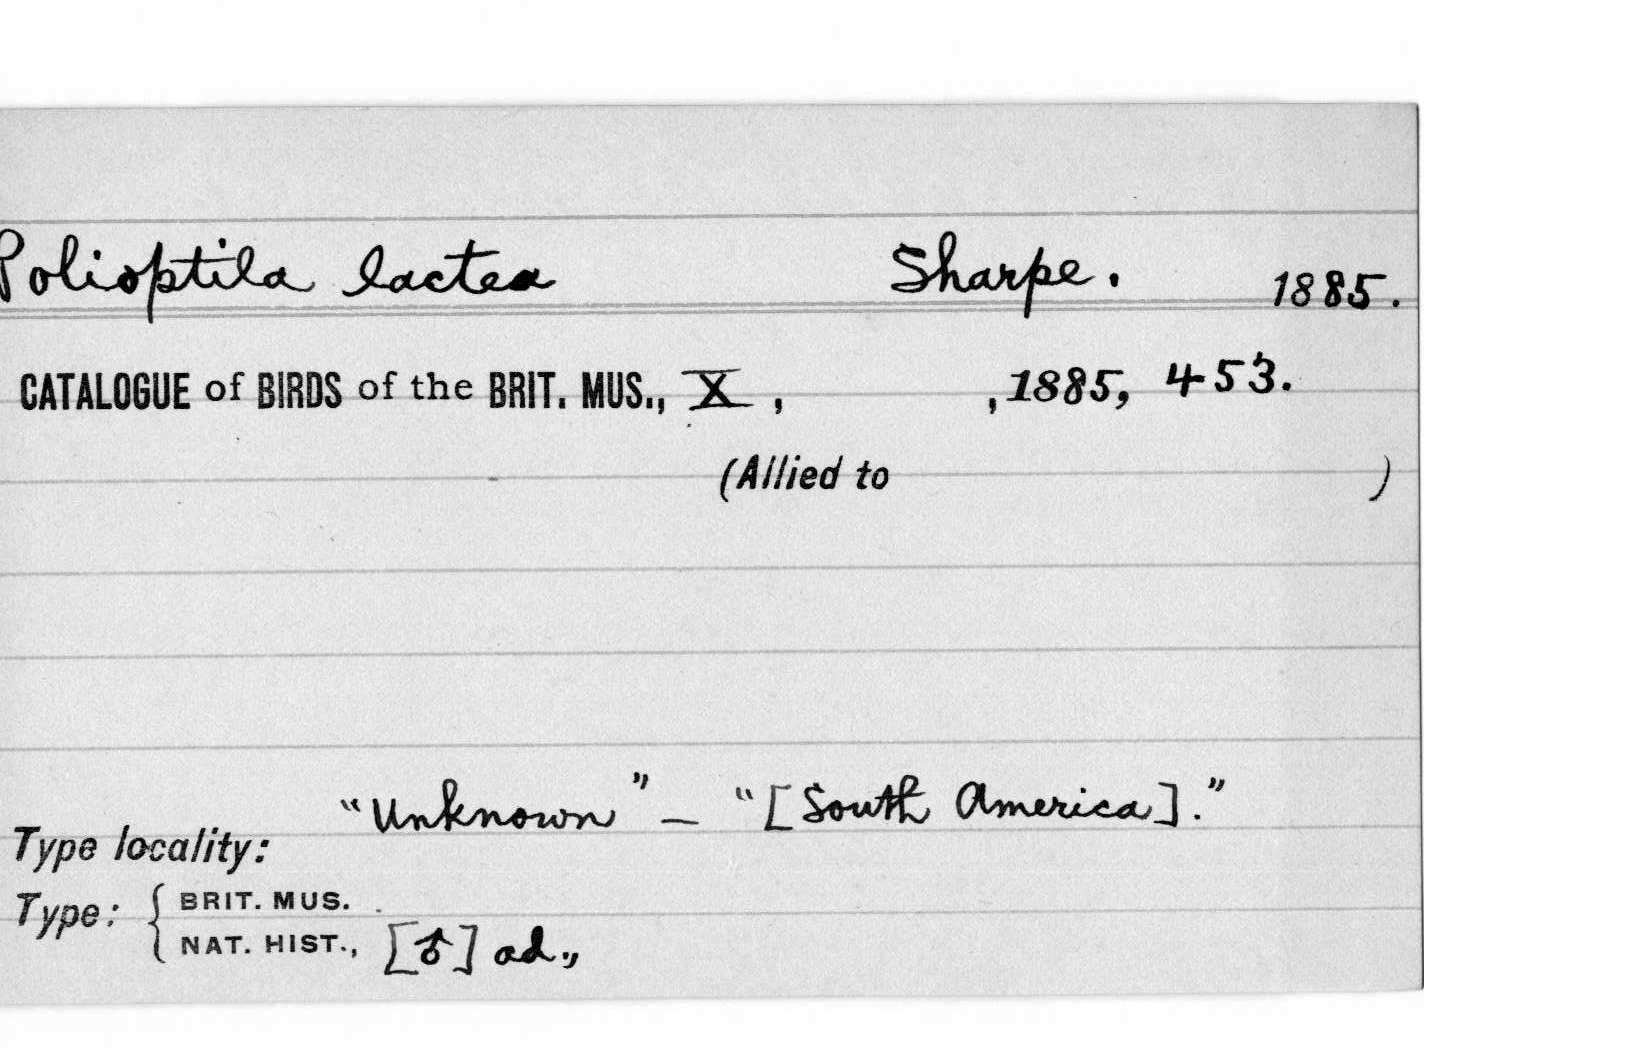 Polioptila lactea Sharpe. 1885.
CATALOGUE of BIRDS of the BRIT. MUS., X , , 1885, 453.
(Allied to )
"Unknown" – "[South America]."
Type locality:
Type: { BRIT. MUS.
NAT. HIST., [♂] ad.,